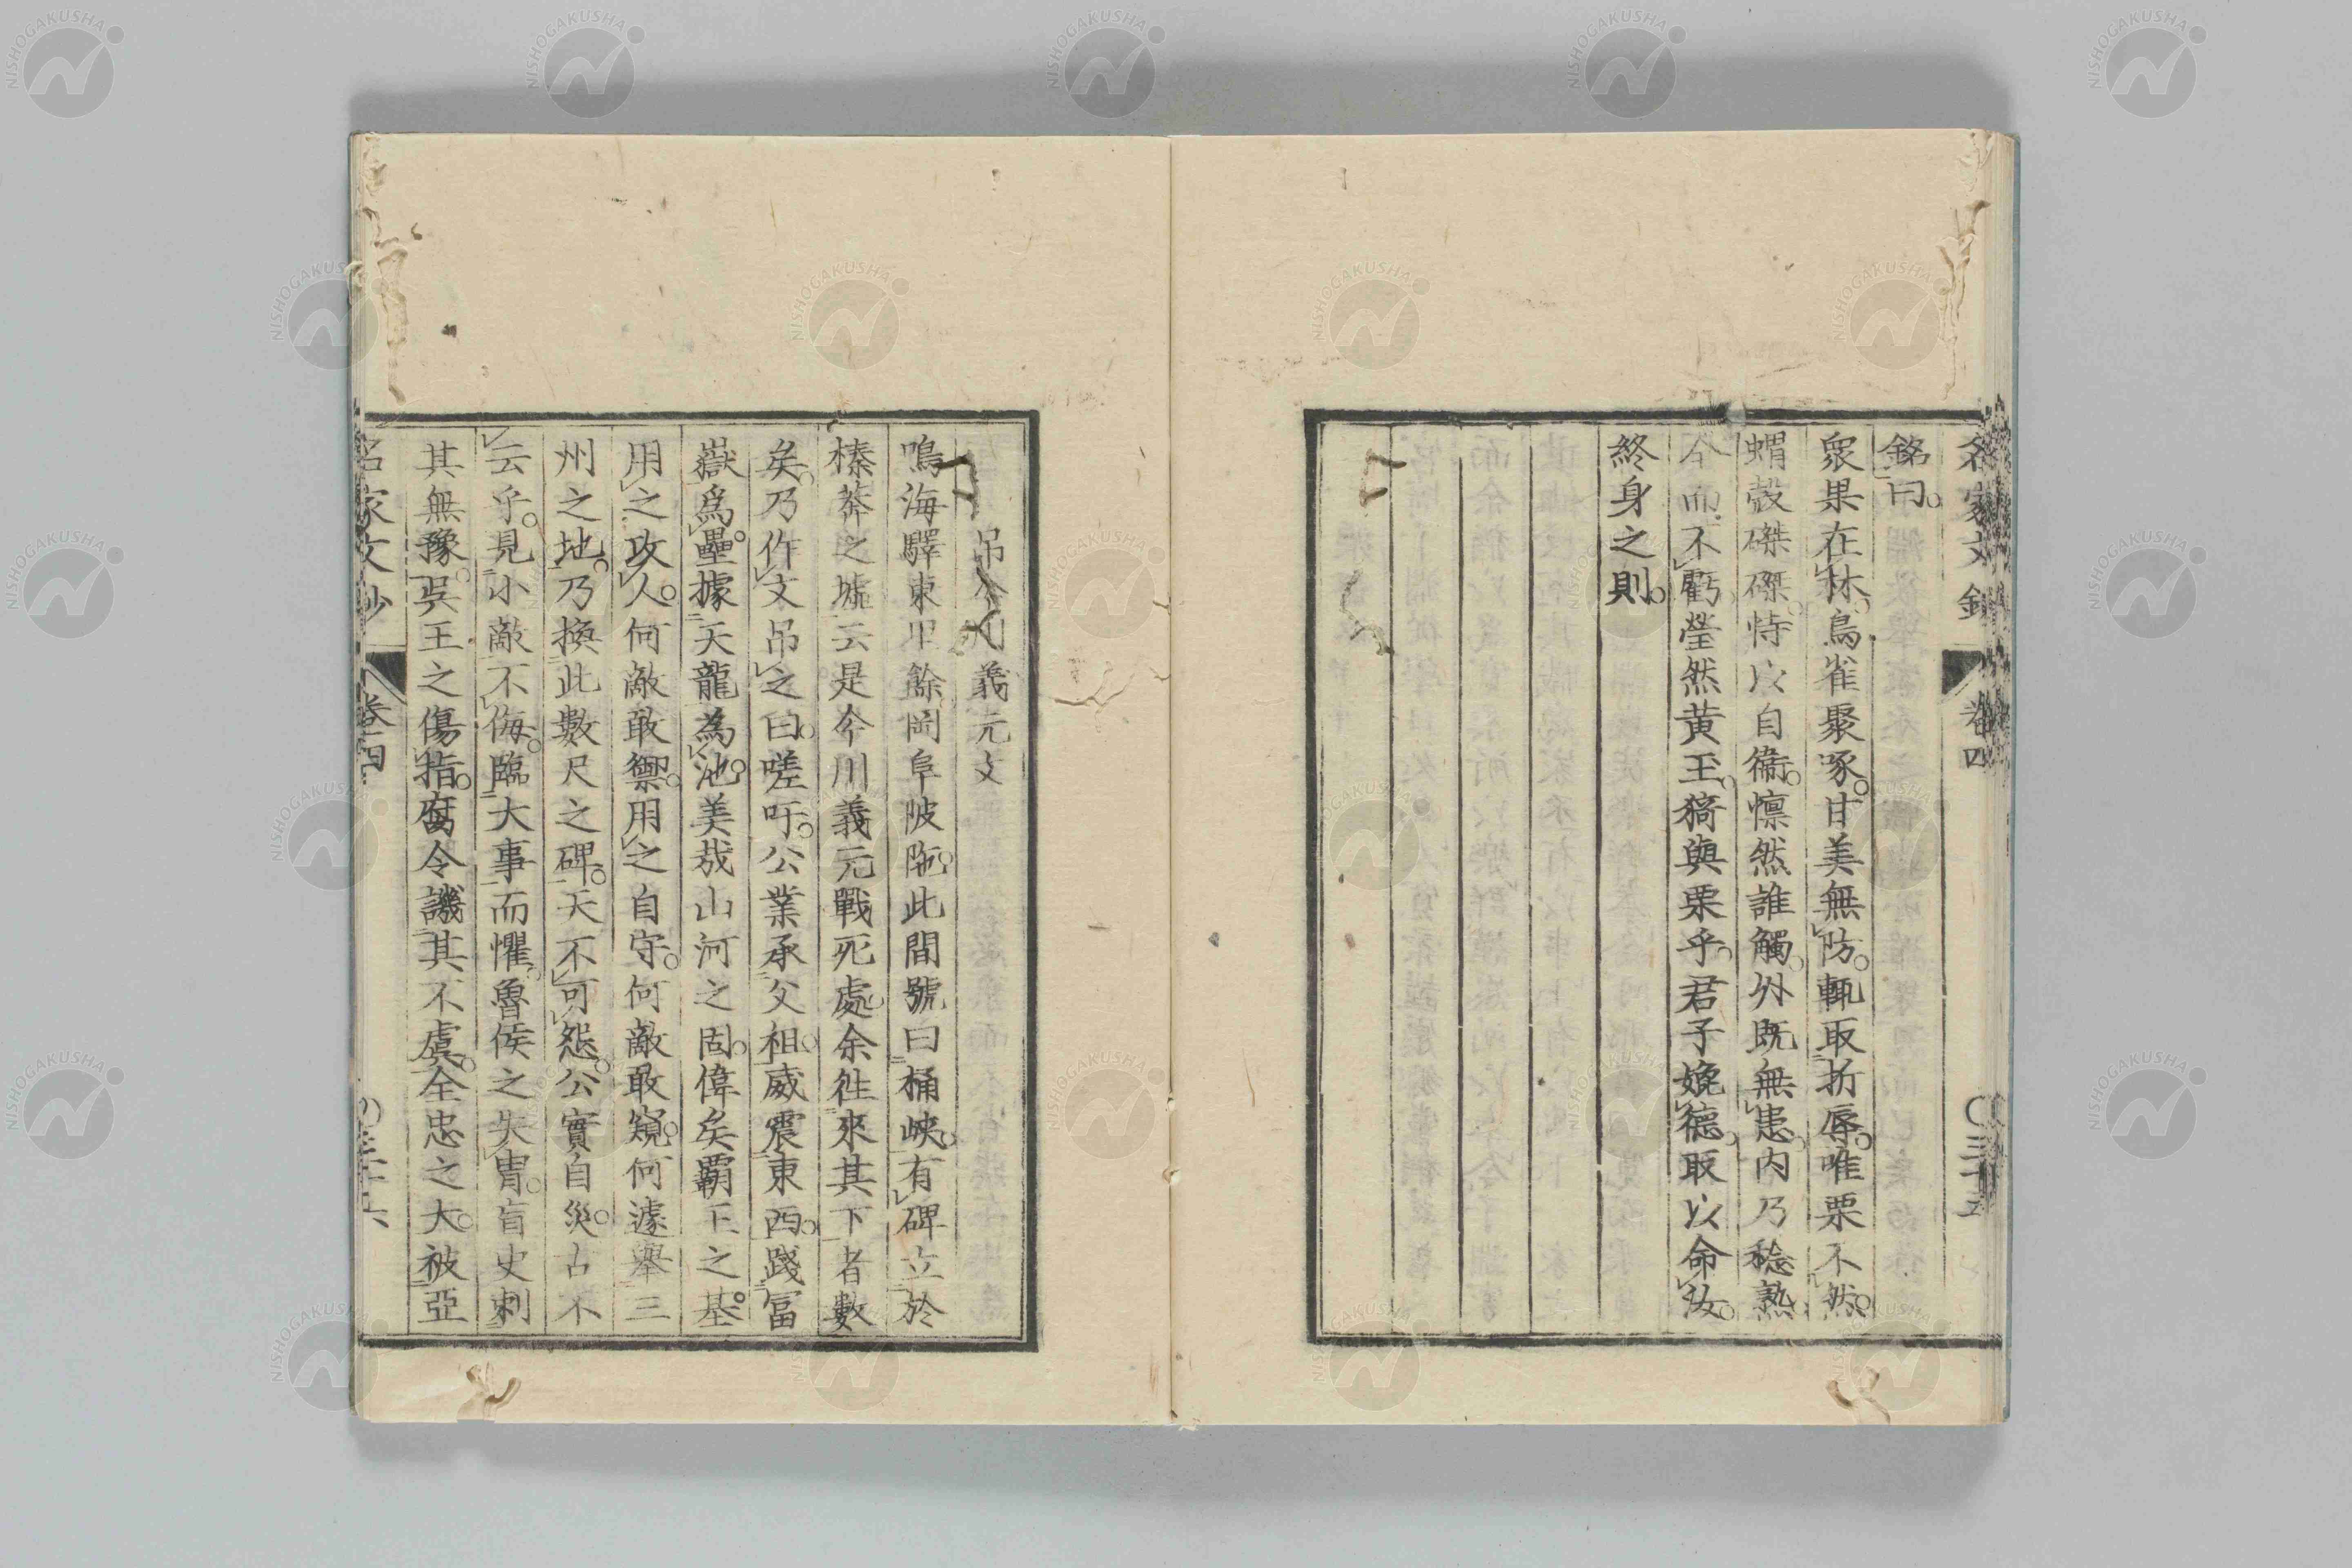 名家文鈔 卷四 〇三十五
銘曰。
衆果在林。鳥雀聚啄。甘美無防。輒取折辱。唯栗不然。
蝟殼磔磔。恃以自衞。懍然誰觸。外既無患。内乃稔熟。
全而不虧。瑩然黄玉。猗與栗乎。君子媲德。取以命汝。
終身之則。
吊今川義元文
鳴海驛東里餘岡阜陂陁。此間號曰桶峽。有碑立於
榛莽之墟。云是今川義元戰死處。余往來其下者數
矣。乃作文吊之曰。嗟吁。公業承父祖。威震東西。踐冨
嶽爲壘。據天龍為池。美哉山河之固。偉矣覇王之基。
用之攻人。何敵敢禦。用之自守。何敵敢窺。何遽舉三
州之地。乃換此數尺之碑。天不可怨。公實自災。古不
云乎。見小敵不侮。臨大事而懼。魯侯之失冑。盲史刺
其無豫。吳王之傷指。腐令譏其不虞。全忠之大。被亞
名家文鈔 卷四 〇三十六
NISHOGAKUSHA